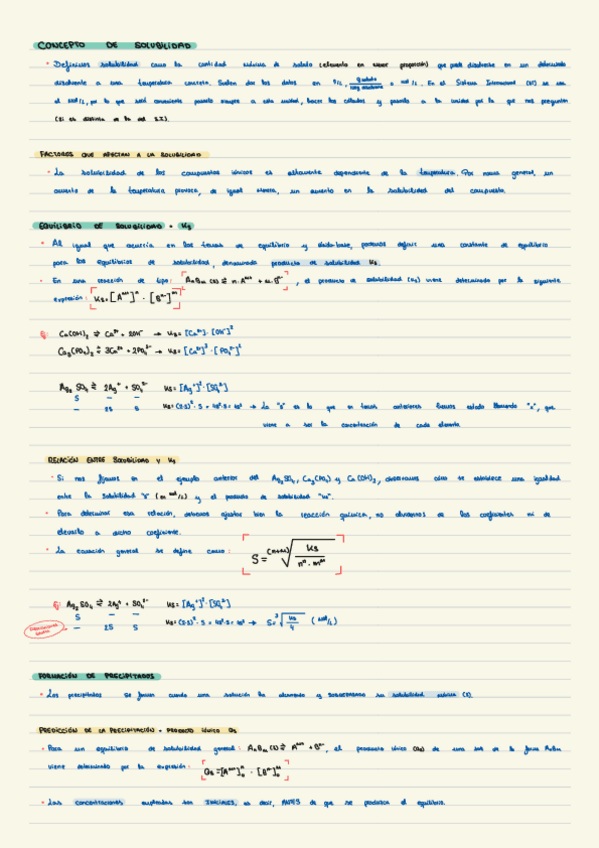 CONCEPTO DE SOLUBILIDAD
• Definimos solubilidad como la cantidad máxima de soluto (elemento en menor proporción) que puede disolverse en un determinado
disolvente a una temperatura concreta. Suelen dar los datos en g/L, g soluto/100g disolvente o mol/L. En el Sistema Internacional (SI) se usa
el mol/L, por lo que será conveniente pasarlo siempre a esta unidad, hacer los cálculos y pasarlo a la unidad por la que nos pregunten
(si es distinta de la del S.I.).
FACTORES QUE AFECTAN A LA SOLUBILIDAD
• La solubilidad de los compuestos iónicos es altamente dependiente de la temperatura. Por norma general, un
aumento de la temperatura provoca, de igual manera, un aumento en la solubilidad del compuesto.
EQUILIBRIO DE SOLUBILIDAD - Ks
• Al igual que ocurría en los temas de equilibrio y ácido-base, podemos definir una constante de equilibrio
para los equilibrios de solubilidad, denominada producto de solubilidad Ks.
• En una reacción de tipo: AnBm (s) ⇄ n·A^m+ + m·B^n-, el producto de solubilidad (Ks) viene determinado por la siguiente
expresión: Ks=[A^m+]^n · [B^n-]^m
Ej: Ca(OH)₂ ⇄ Ca²⁺ + 2OH⁻ → Ks = [Ca²⁺]·[OH⁻]²
Ca₃(PO₄)₂ ⇄ 3Ca²⁺ + 2PO₄³⁻ → Ks = [Ca²⁺]³·[PO₄³⁻]²
Ag₂SO₄ ⇄ 2Ag⁺ + SO₄²⁻ Ks = [Ag⁺]²·[SO₄²⁻]
S — —
— 2S S Ks = (2·S)²·S = 4S²·S = 4S³ → La "s" es lo que en temas anteriores hemos estado llamando "x", que
viene a ser la concentración de cada elemento.
RELACIÓN ENTRE SOLUBILIDAD Y Ks
• Si nos fijamos en el ejemplo anterior del Ag₂SO₄, Ca₃(PO₄)₂ y Ca(OH)₂, observamos cómo se establece una igualdad
entre la solubilidad "s" (en mol/L) y el producto de solubilidad "Ks".
• Para determinar esa relación, debemos ajustar bien la reacción química, no olvidarnos de los coeficientes ni de
elevarlo a dicho coeficiente.
• La ecuación general se define como: S = ⁽ⁿ⁺ᵐ⁾√(Ks / nⁿ·mᵐ)
Ej: Ag₂SO₄ ⇄ 2Ag⁺ + SO₄²⁻ Ks = [Ag⁺]²·[SO₄²⁻]
S — —
— 2S S Ks = (2·S)²·S = 4S²·S = 4S³ → S = ³√(Ks/4) (mol/L)
FORMACIÓN DE PRECIPITADOS
• Los precipitados se forman cuando una solución ha alcanzado y SOBREPASADO su solubilidad máxima (S).
PREDICCIÓN DE LA PRECIPITACIÓN - PRODUCTO IÓNICO Qs
• Para un equilibrio de solubilidad general: AnBm (s) ⇄ A^m+ + B^n-, el producto iónico (Qs) de una sal de la forma AnBm
viene determinado por la expresión: Qs=[A^m+]₀^n · [B^n-]₀^m
• Las concentraciones empleadas son INICIALES, es decir, ANTES de que se produzca el equilibrio.